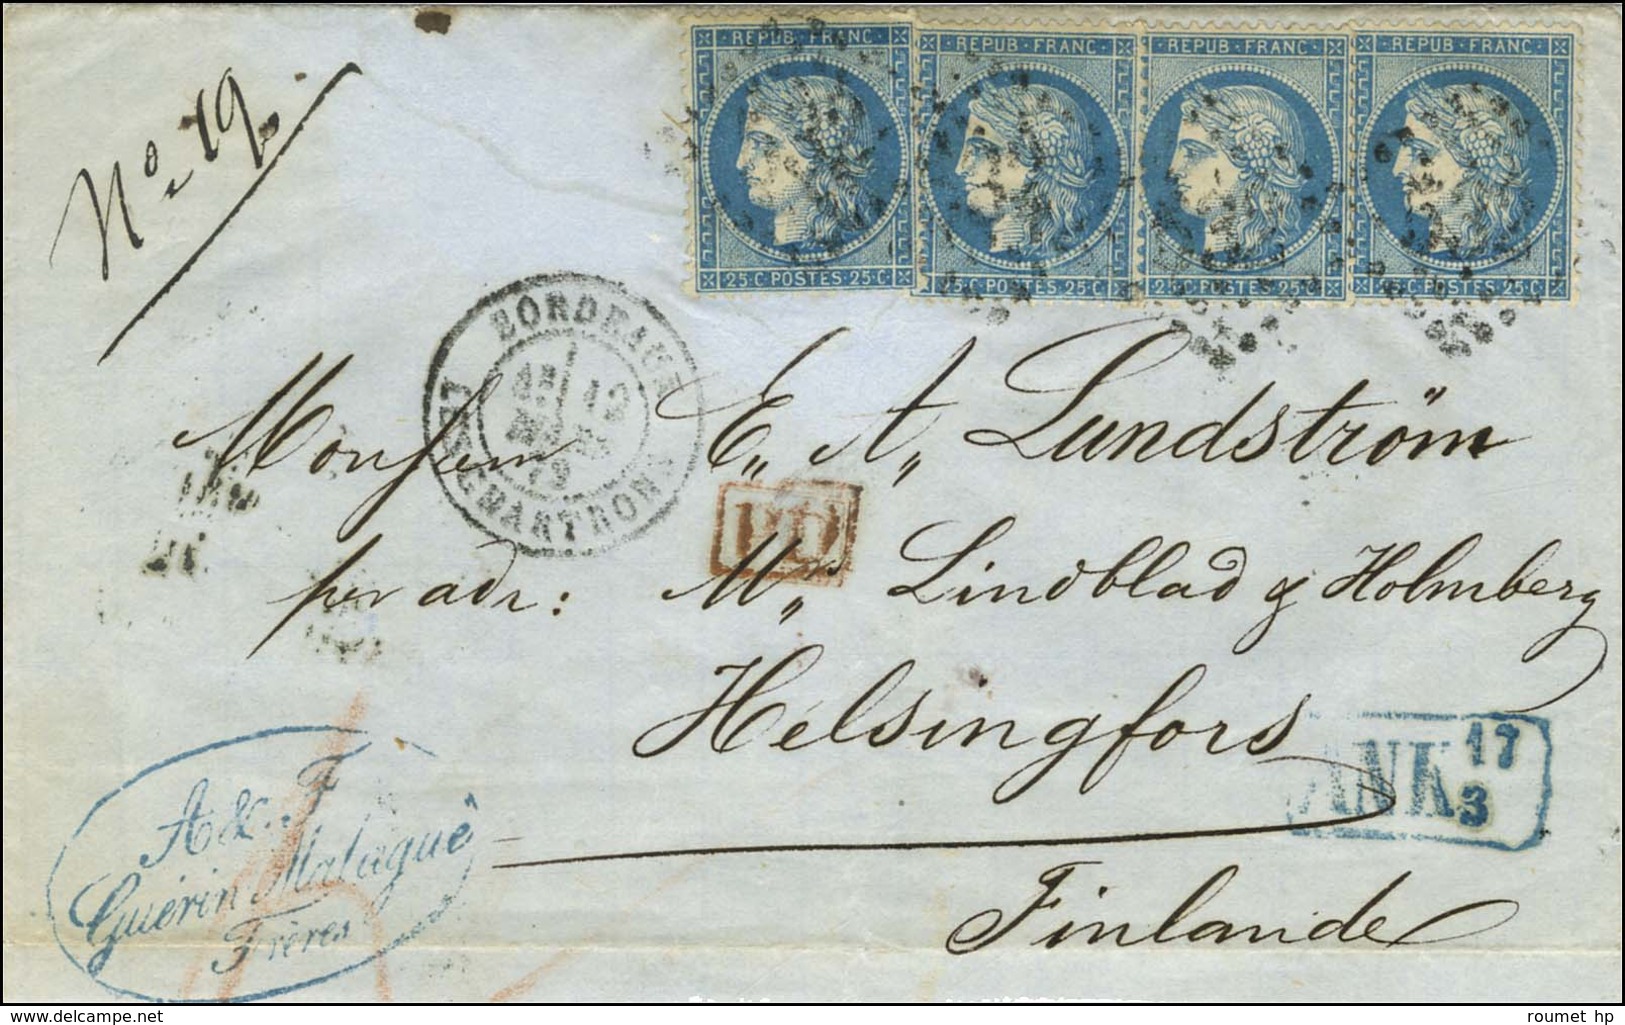 No 19
REPUB·FRANC
25·C·POSTES·25·C
REPUB·FRANC
25·C·POSTES·25·C
REPUB·FRANC
25·C·POSTES·25·C
REPUB·FRANC
25·C·POSTES·25·C
BORDEAUX
12
MARS
LES-CHARTRONS
Monsieur E. A. Lundström
PD
per adr: Mrs Lindblad & Holmberg
Helsingfors
ANK 17/3
Finlande
A & F
Guérin Malagué
Frères
roumet hp